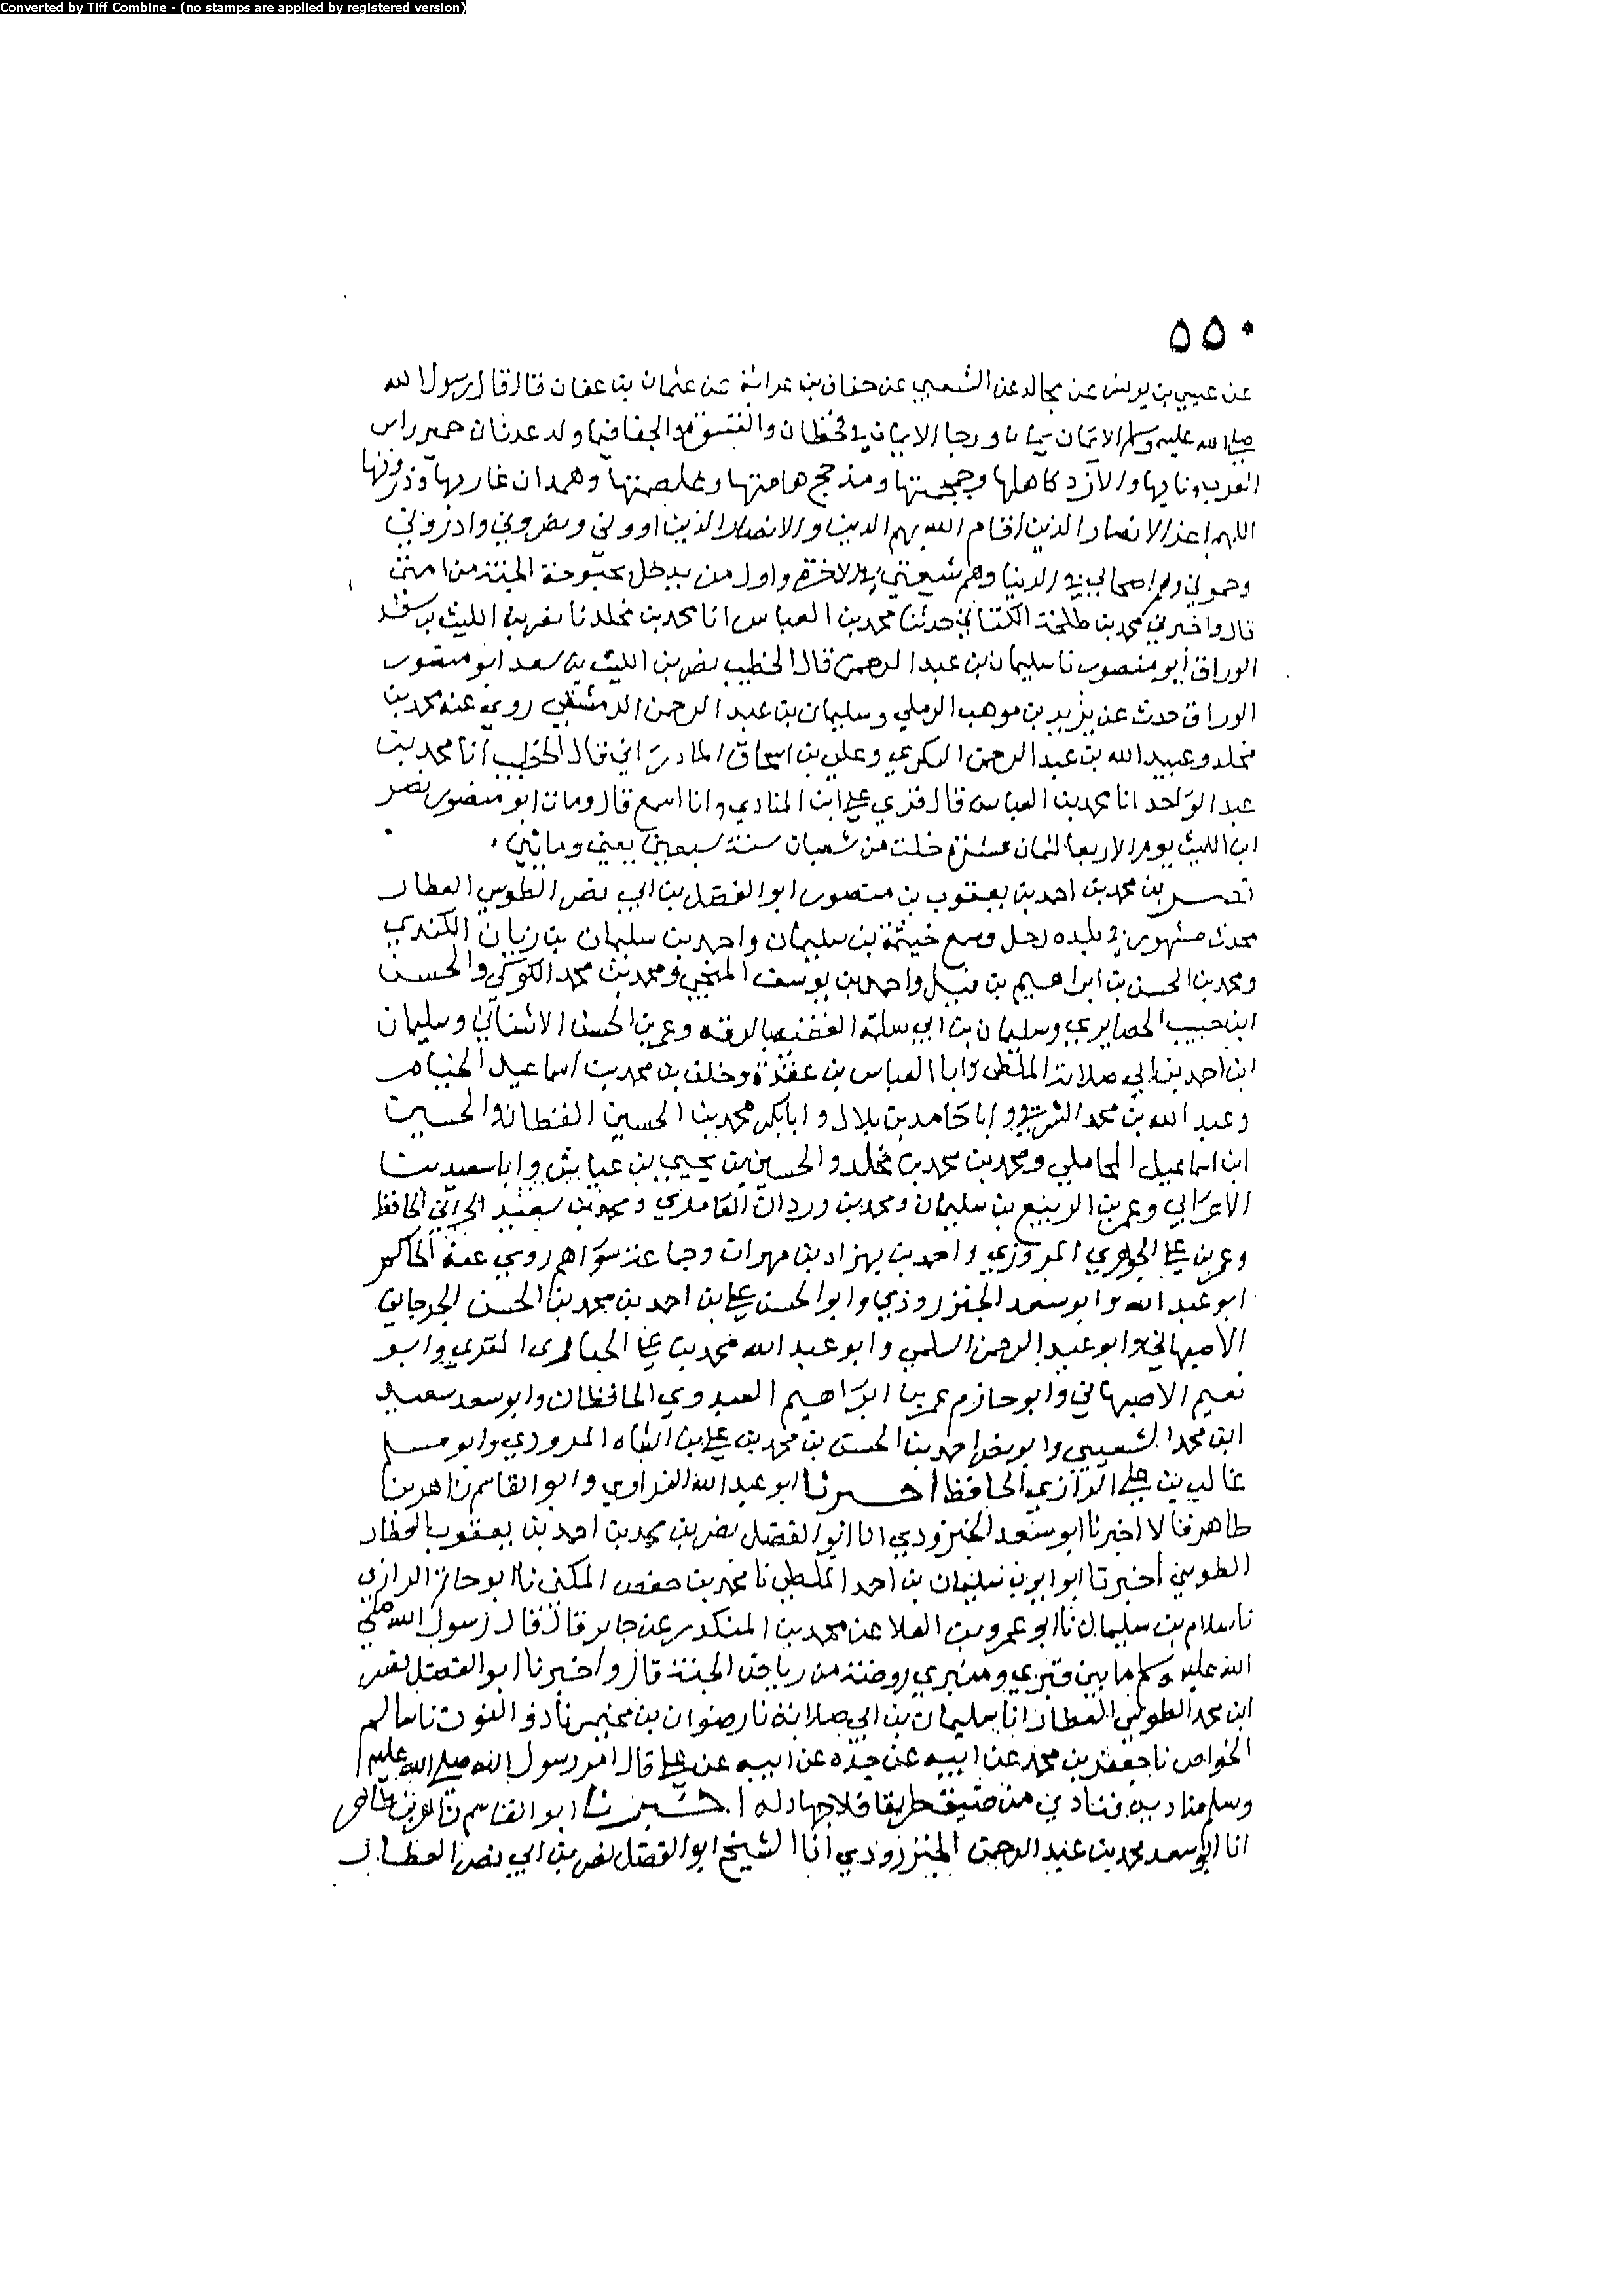 Converted by Tiff Combine - (no stamps are applied by registered version)
٥٥٠
عن عيسى بن يونس عن مجالد عن الشعبي عن حفان بن عرابة عن عثمان بن عفان قال قال رسول الله
صلى الله عليه وسلم الايمان يمان ورحا الايمان في قحطان والقسوة والجفا فيما ولد عدنان حمير راس
العرب ونابها والازد كاهلها وجمجمتها ومذحج هامتها وغلصمتها وهمدان غاربها وذروتها
اللهم اعز الانصار الذين اقام الله بهم الدين والانصار الذين اووني ونصروني وازروني
وحموني وهم اصحابي في الدنيا وهم شيعتي في الاخرة واول من يدخل بحبوحة الجنة من امتي
قال واخبرني محمد بن طلحة الكتاني حدثنا محمد بن العباس انا محمد بن مخلد نا نصر بن الليث بن سعد
الوراق أبو منصور نا سليمان بن عبد الرحمن قال الخطيب نصر بن الليث بن سعد ابو منصور
الوراق حدث عن يزيد بن موهب الرملي وسليمان بن عبد الرحمن الدمشقي روى عنه محمد بن
مخلد وعبيد الله بن عبد الرحمن السكري وعلي بن اسحاق المادراني قال الخطيب أنا محمد بن
عبد الواحد انا محمد بن العباس قال قرى على ابن المنادي وانا اسمع قال ومات ابو منصور نصر
ابن الليث يوم الاربعا لثمان عشرة خلت من شعبان سنة سبعين يعني ومائتين
نصر بن محمد بن احمد بن يعقوب بن منصور ابو الفضل بن ابي نصر الطوسي العطار
محدث مشهور في بلده رحل وسمع خيثمة بن سليمان واحمد بن سليمان بن زبان الكندي
ومحمد بن الحسن بن ابراهيم بن فيل واحمد بن يوسف المنبجي ومحمد بن محمد الكوكي والحسن
ابن حبيب الحصايري وسليمان بن ابي سلمة الفقيه بالرقة وعمر بن الحسن الاشناني وسليمان
ابن احمد بن ابي صلابة الملطي وابا العباس بن عقدة وخلف بن محمد بن اسماعيل الخيام
وعبد الله بن محمد الشرقي وابا حامد بن بلال وابا بكر محمد بن الحسين القطان والحسين
ابن اسماعيل المحاملي ومحمد بن محمد بن مخلد والحسين بن يحيى بن عياش وابا سعيد بن
الاعرابي وعمر بن الربيع بن سليمان ومحمد بن وردان العامري ومحمد بن سعيد الحراني الحافظ
وعمر بن علي الجوهري المروزي واحمد بن بهزاد بن مهران وجماعة سواهم روى عنه الحاكم
ابو عبد الله وابو سعد الجنزروذي وابو الحسن علي بن احمد بن محمد بن الحسن الجرجاني
الاصبهاني وابو عبد الرحمن السلمي وابو عبد الله محمد بن علي الخبازى المقري وابو
نعيم الاصبهاني وابو حازم عمر بن ابراهيم العبدوي الحافظان وابو سعد سعيد
ابن محمد الشعيبي وابو نصر احمد بن الحسن بن محمد بن علي بن الشاه المروزي وابو مسلم
غالب بن علي الرازي الحافظ اخبرنا ابو عبد الله الفراوي وابو القاسم زاهر بن
طاهر قالا اخبرنا ابو سعد الجنزروذي انا ابو الفضل نصر بن محمد بن احمد بن يعقوب العطار
الطوسي أخبرنا ابو ايوب سليمان بن احمد الملطي نا محمد بن حفص المكي نا ابو حاتم الرازي
نا سلام بن سليمان نا ابو عمرو بن العلا عن محمد بن المنكدر عن جابر قال قال رسول الله صلى
الله عليه وسلم ما بين قبري ومنبري روضة من رياض الجنة قال واخبرنا ابو الفضل نصر
ابن محمد الطوسي العطار انا سليمان بن ابي صلابة نا رضوان بن محيمر نا ذو النون نا سالم
الخواص نا جعفر بن محمد عن ابيه عن جده عن ابيه عن علي قال امر رسول الله صلى الله عليه
وسلم مناديه فنادي من ضيق طريقا فلا جهاد له اخبرنا ابو القاسم زاهر بن طاهر
انا ابو سعد محمد بن عبد الرحمن الجنزروذي أنا الشيخ ابو الفضل نصر بن ابي نصر العطار